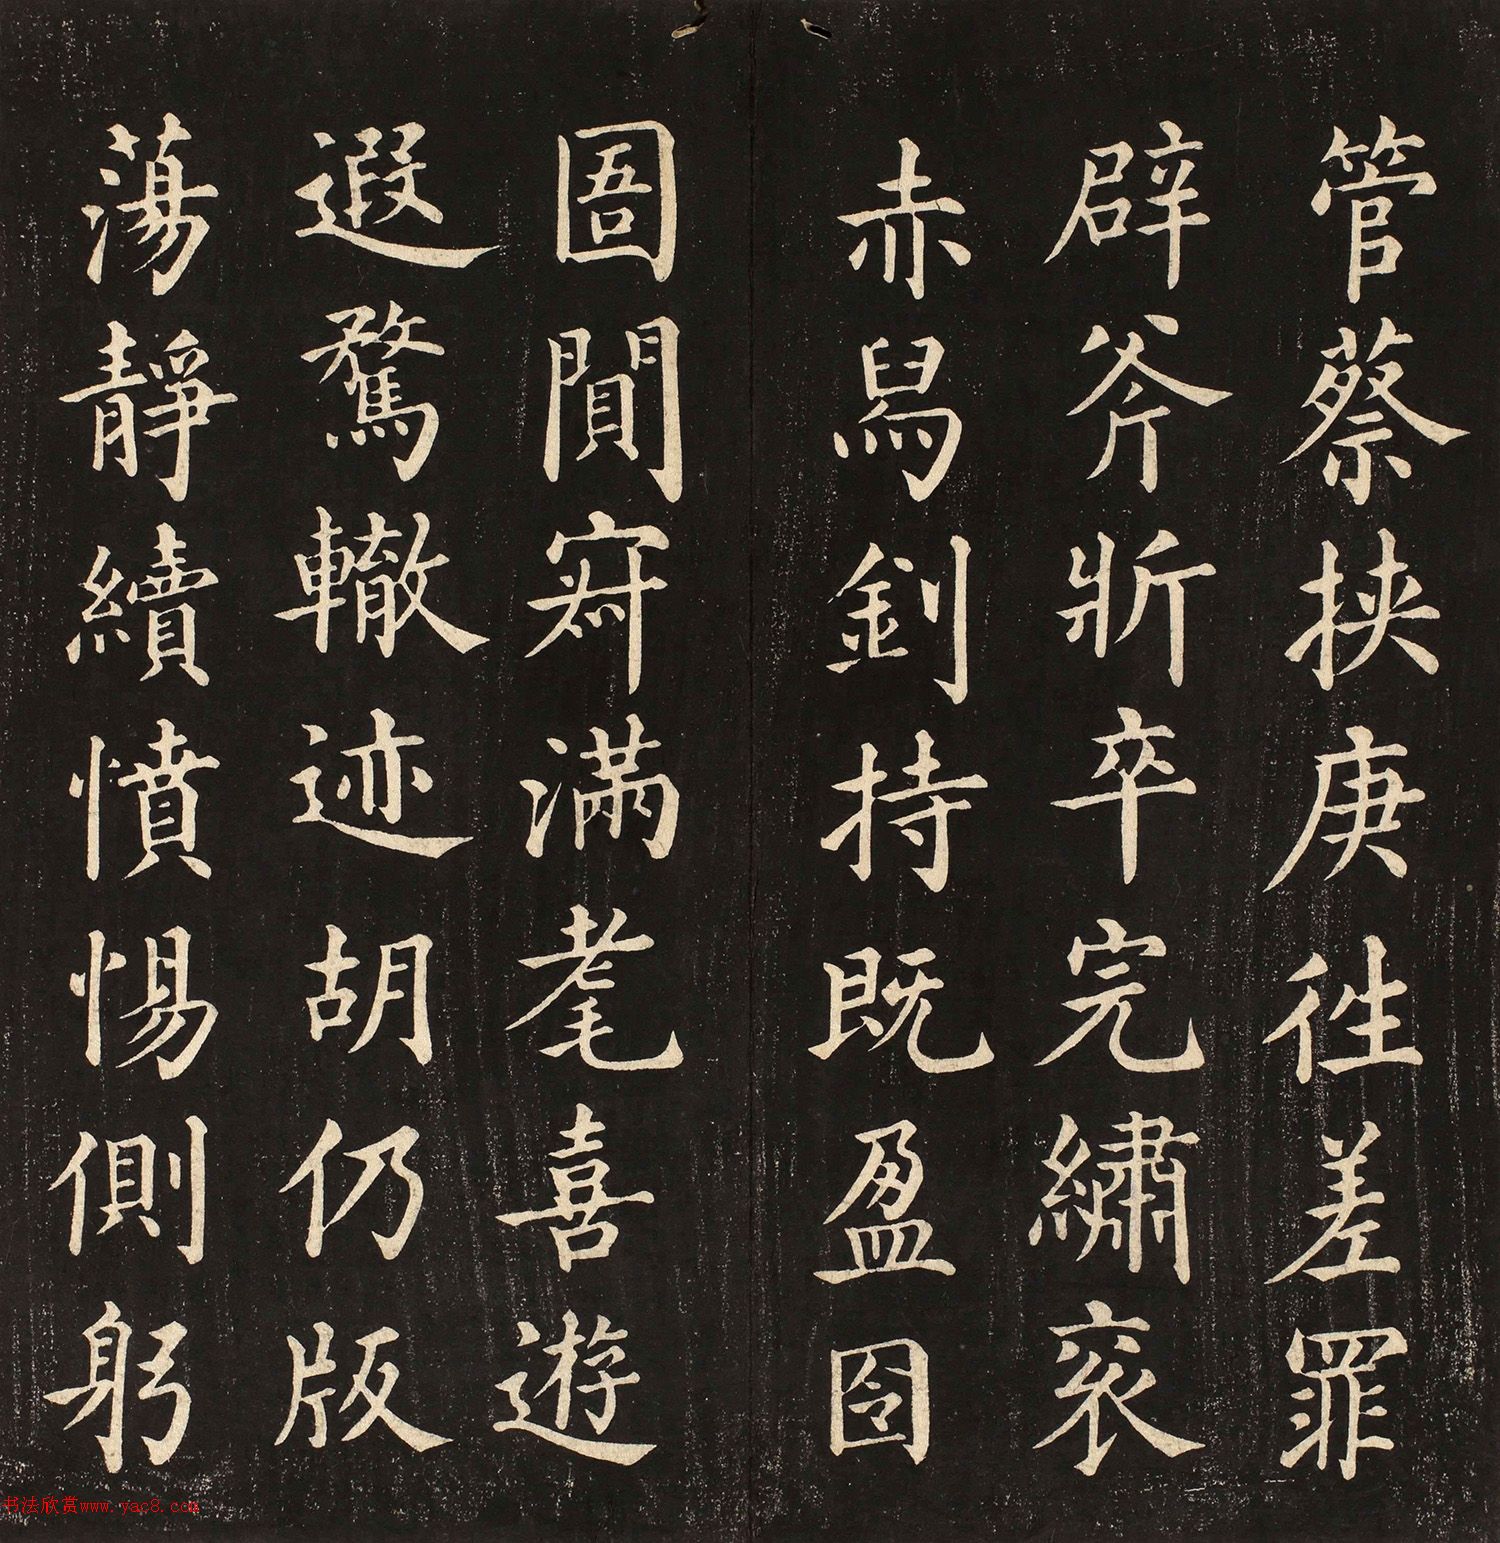 管蔡挾庚徃差罪
辟斧斨卒完繡衮
赤舄釗持既盈囹
圄閒䆿滿耄喜遊
遐騖轍迹胡仍版
蕩靜續憤惕側躬
书法欣赏www.yac8.com